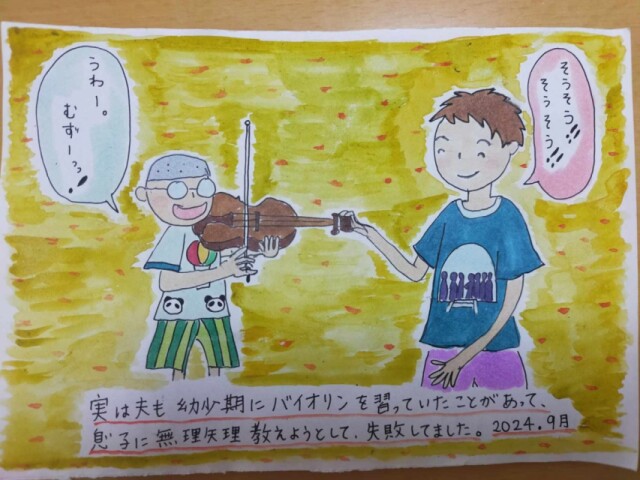 うわー。
むずーっっ!
そうそう!!
そうそう!!
実は夫も幼少期にバイオリンを習っていたことがあって、
息子に無理矢理教えようとして、失敗してました。2024.9月